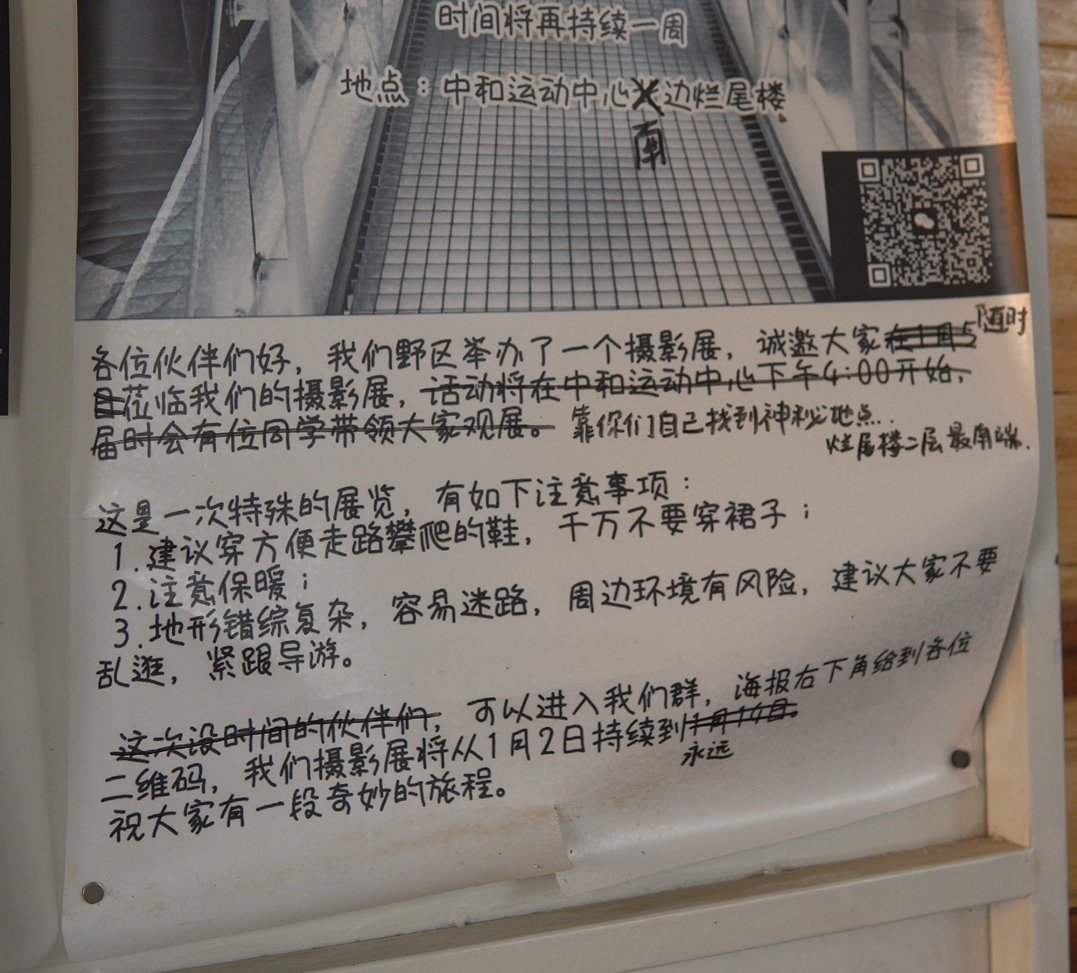 时间将再持续一周
地点：中和运动中心边烂尾楼
南
随时
各位伙伴们好，我们野区举办了一个摄影展，诚邀大家在1月5
日莅临我们的摄影展，活动将在中和运动中心下午4:00开始，
届时会有位同学带领大家观展。靠你们自己找到神秘地点..
烂尾楼二层最南端.
这是一次特殊的展览，有如下注意事项：
1.建议穿方便走路攀爬的鞋，千万不要穿裙子；
2.注意保暖；
3.地形错综复杂，容易迷路，周边环境有风险，建议大家不要
乱逛，紧跟导游。
这次没时间的伙伴们，可以进入我们群，海报右下角给到各位
二维码，我们摄影展将从1月2日持续到1月14日。
永远
祝大家有一段奇妙的旅程。